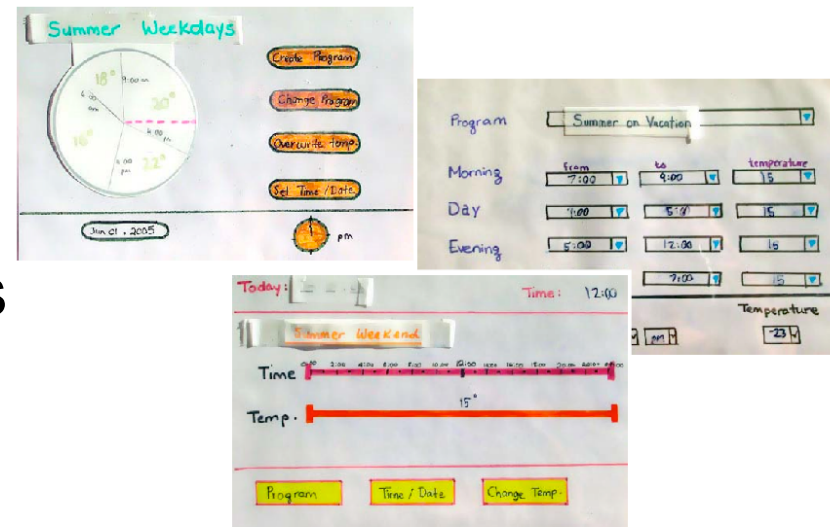 Summer Weekdays
18° 9:00 am
20°
6:00 am
4:00 pm
18°
6:00 pm
22°
Create Program
Change Program
Overwrite temp.
Set Time/Date
Jun 01, 2005
pm
Program Summer on Vacation
from to temperature
Morning 7:00 9:00 15
Day 9:00 5:00 15
Evening 5:00 12:00 15
7:00 15
Temperature
pm -23
s
Today:
Time: 12:00
Summer Weekend
Time 0:00 2:00 4:00 6:00 8:00 10:00 12:00 14:00 16:00 18:00 20:00
15°
Temp.
Program Time / Date Change Temp.